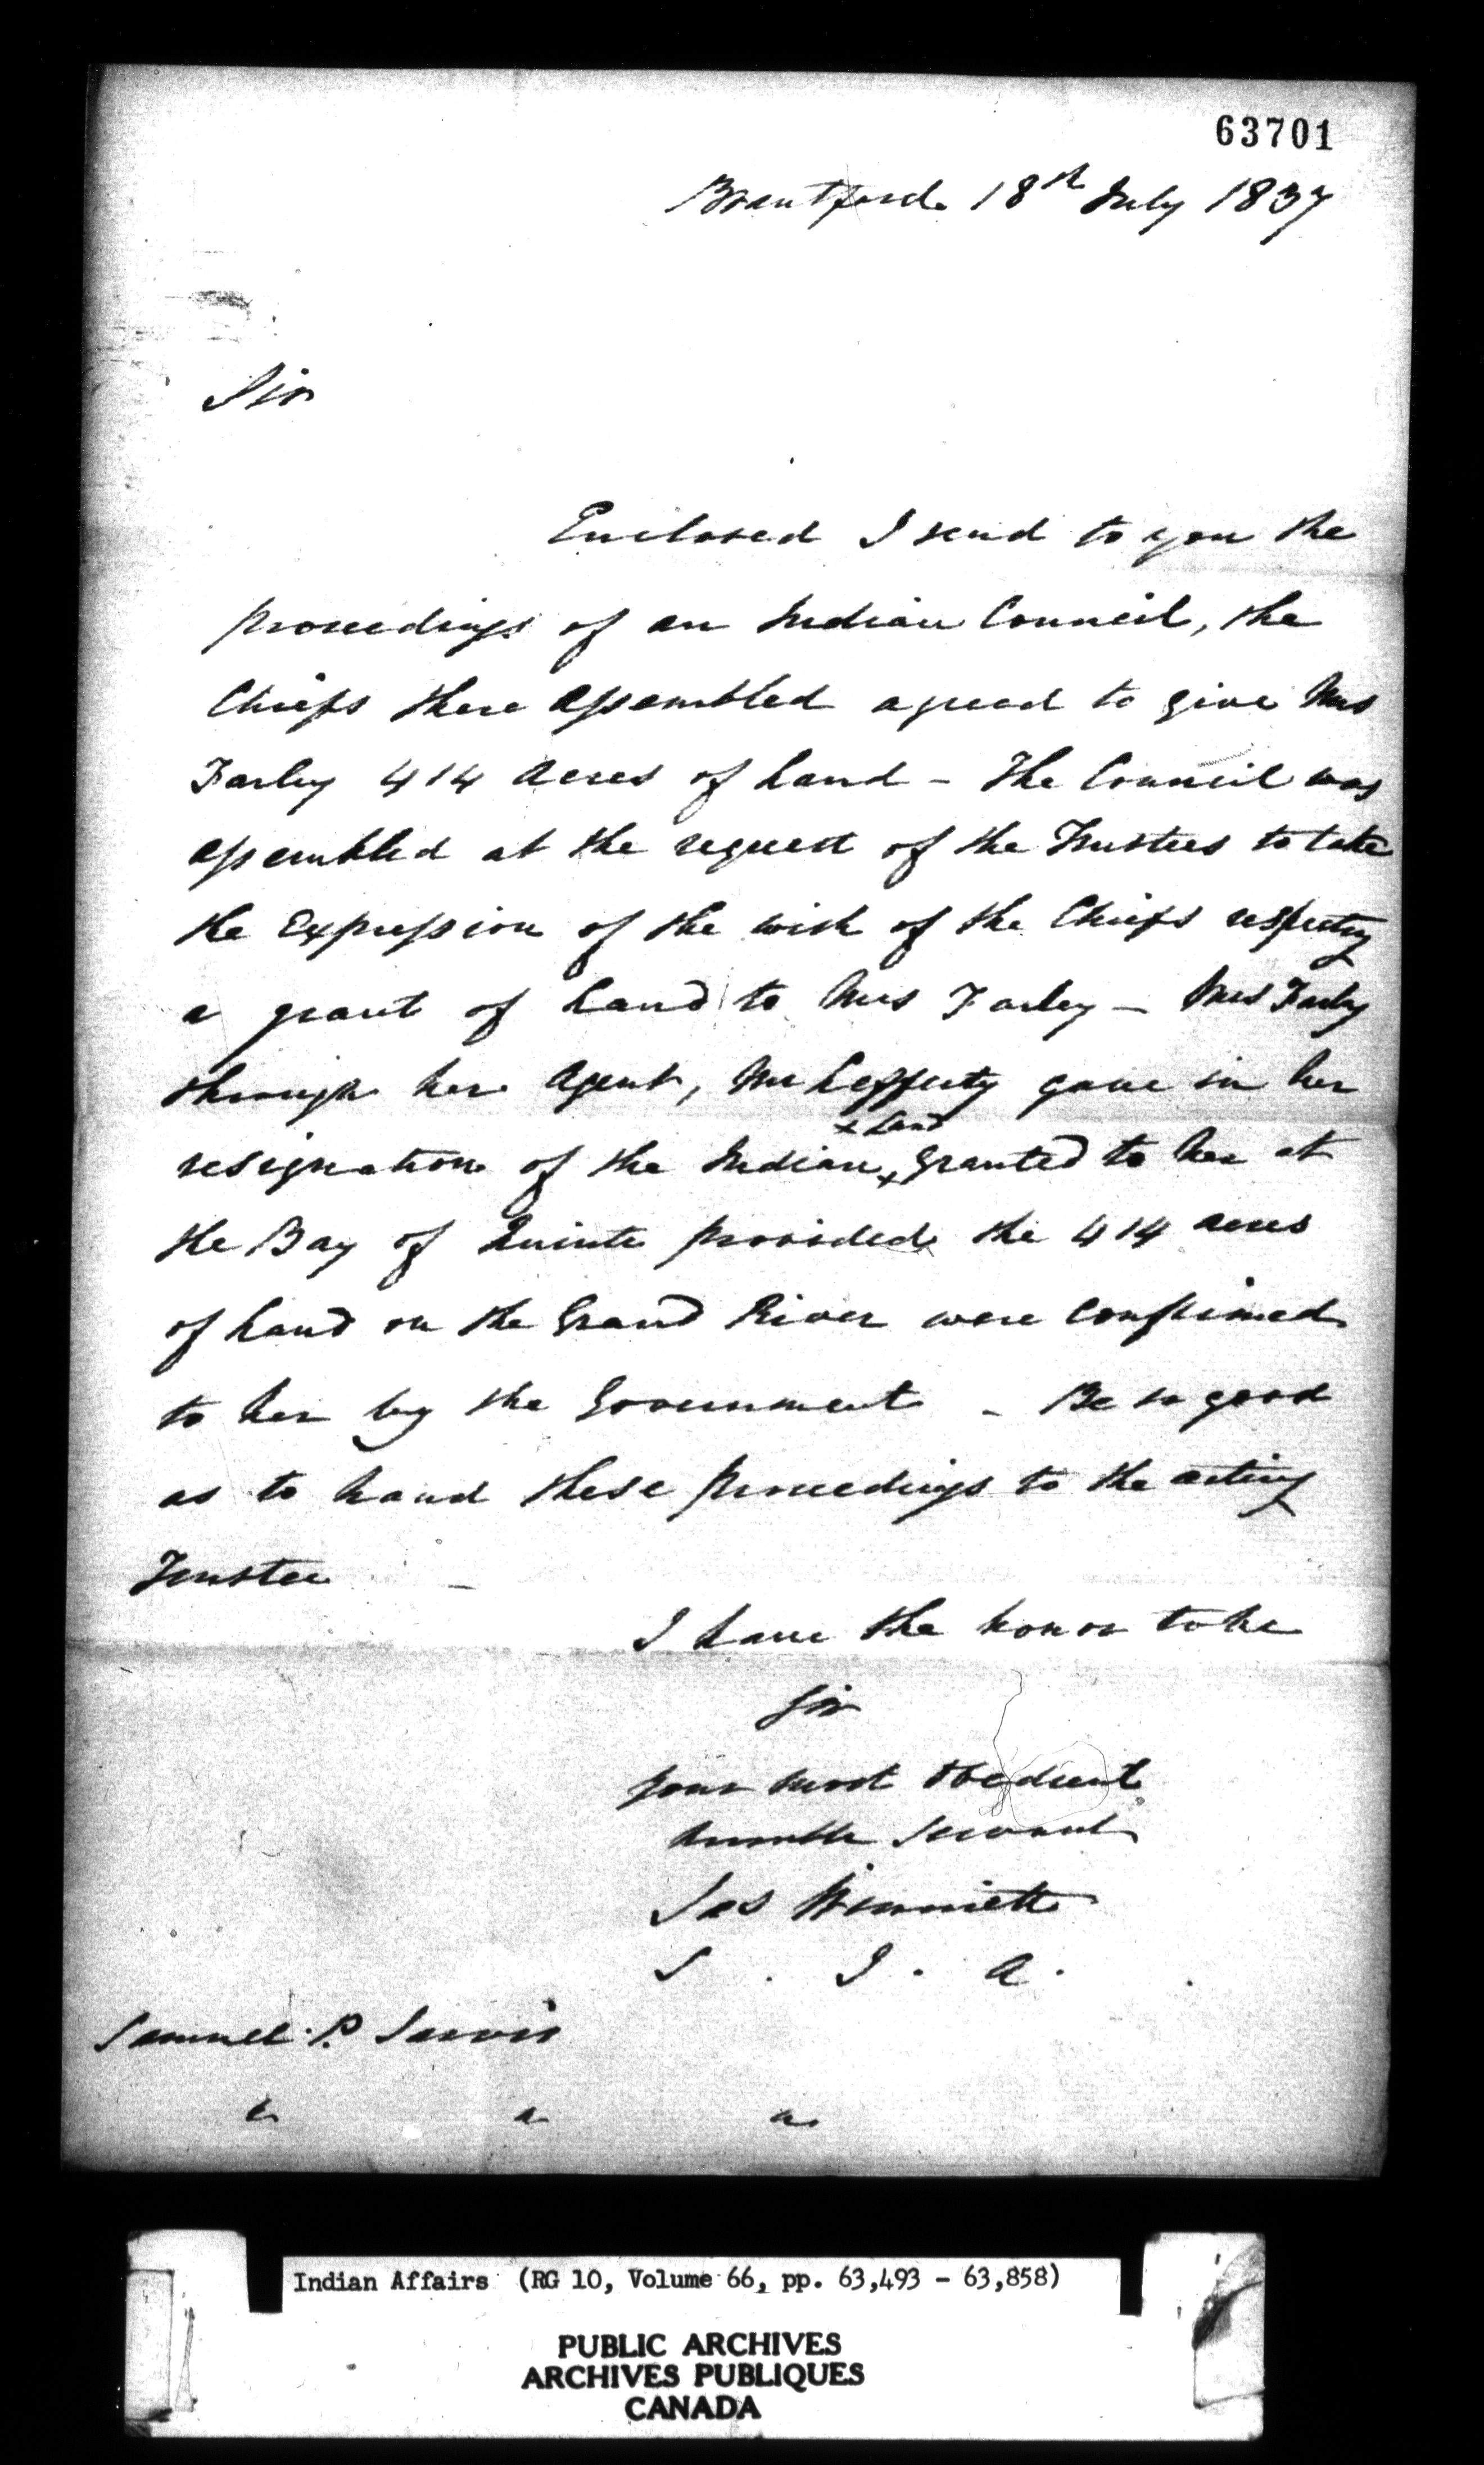 63701
Brantford 18th July 1837
Sir
Enclosed I send to you the
proceedings of an Indian Council, the
Chiefs there assembled agreed to give Mrs
Farley 414 acres of Land - The Council was
assembled at the request of the Trustees to take
the Expression of the wish of the Chiefs respecting
a grant of Land to Mrs Farley - Mrs Farley
through her Agent, Mr Lafferty gave in her
+ Land
resignation of the Indian + granted to her at
the Bay of Quinte provided the 414 acres
of Land on the Grand River were Confirmed
to her by the Government - Be so good
as to hand these proceedings to the acting
Trustee -
I have the honor to be
Sir
your most Obedient
humble Servant
Jas Winniett
S. I. A.
Samuel P. Jarvis
Indian Affairs (RG 10, Volume 66, pp. 63,493 - 63,858)
PUBLIC ARCHIVES
ARCHIVES PUBLIQUES
CANADA